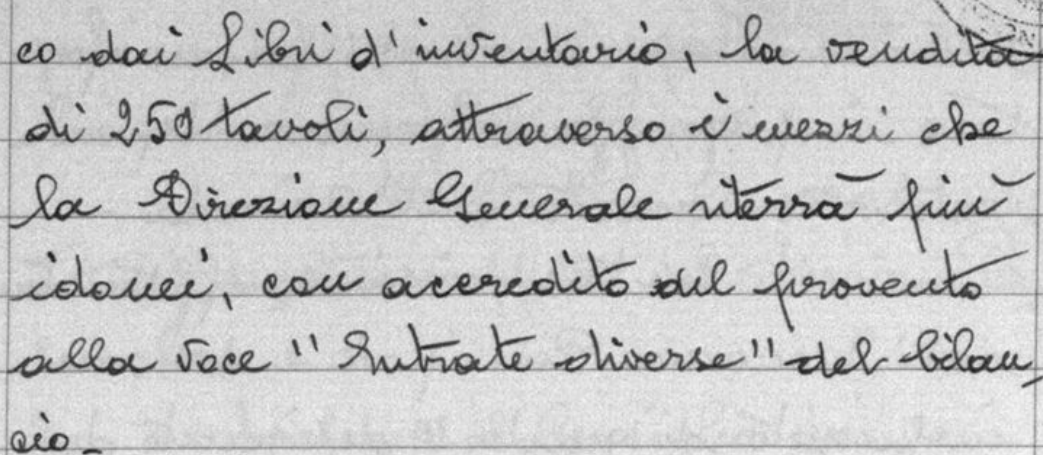 co dai Libri d'inventario, la vendita
di 250 tavoli, attraverso i mezzi che
la Direzione Generale riterrà più
idonei, con accredito del provento
alla voce "Entrate diverse" del bilan
cio.